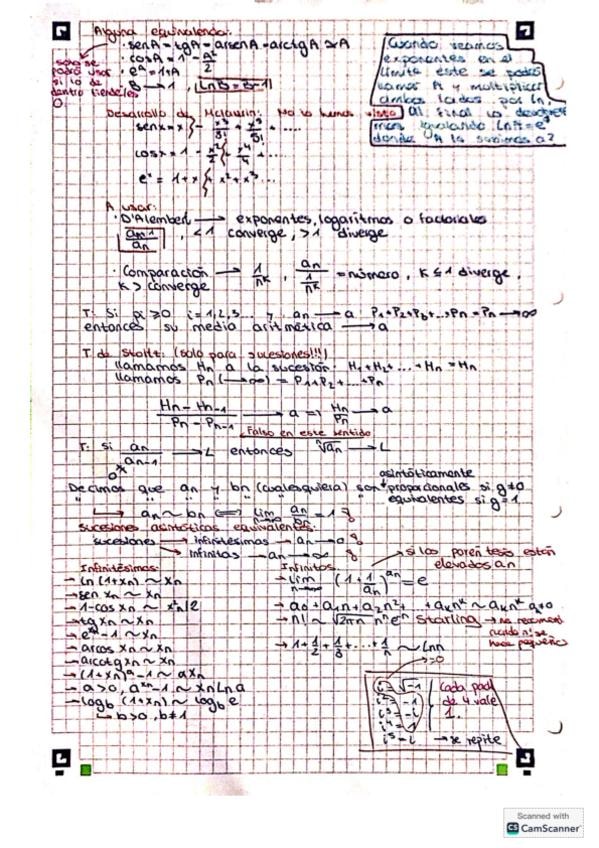 Alguna equivalencia:
· senA = tgA = arsenA = arctgA ≈ A
· cosA = 1 - A²/2
· e^A = 1+A
B → 1, LnB = B-1
solo se
podrá usar
si lo de
dentro tiende
0.
Cuando veamos
exponentes en el
límite este se podrá
llamar A y multiplicar
ambos lados por ln
Al final lo
donde A la
Desarrollo de Mclaurin: No lo hemos visto
senx = x - x³/3! + x⁵/5! + ....
cosx = 1 - x²/2 + x⁴/4 + ...
e^x = 1 + x + x² + x³...
A usar:
· D'Alembert → exponentes, logaritmos o factoriales
an-1/an, <1 converge, >1 diverge
· Comparación → 1/n^k, an/(1/n^k) = número, K ≤ 1 diverge,
K > converge
T: Si pi ≥ 0 i = 1,2,3... y an → a P1+P2+P3+...+Pn = Pn → ∞
entonces su media aritmética → a
T de Stoltz: (solo para sucesiones!!!)
llamamos Hn a la sucesión: H1+H2+...+Hn = Hn
llamamos Pn (→∞) = P1+P2+...+Pn
Hn - Hn-1 / Pn - Pn-1 → a => Hn/Pn → a
Falso en este sentido
T: Si an/an-1 → L entonces ⁿ√an → L
asintóticamente
Decimos que an y bn (cualesquiera) son proporcionales si q≠0
" " " " " equivalentes si q=1.
↳ an ~ bn ⟺ lim n→∞ an/bn = 1
Sucesiones asintóticas equivalentes:
sucesiones → infinitésimas → an → 0
→ infinitas → an → ∞
Infinitésimos:
→ ln(1+xn) ~ xn
→ sen xn ~ xn
→ 1-cos xn ~ x²n/2
→ tg xn ~ xn
→ e^xn - 1 ~ xn
→ arcos xn ~ xn
→ arcotg xn ~ xn
→ (1+xn)^a - 1 ~ axn
→ a>0, a^xn - 1 ~ xn Ln a
→ logb (1+xn) ~ logb e
↳ b>0, b≠1
Infinitos
→ si los paréntesis están
elevados an
→ lim n→∞ (1 + 1/an)^an = e
→ a0 + a1n + a2n² + ... + akn^k ~ akn^k a≠0
→ n! ~ √2πn n^n e^-n Starling → no
cuando n! se
hace pequeño
→ 1 + 1/2 + 1/3 + ... + 1/n ~ Lnn
→ = 0
i = √-1
i² = -1
i³ = -i
i⁴ = 1
i⁵ = i → se repite
Cada
de 4 vale
1.
Scanned with
CS CamScanner